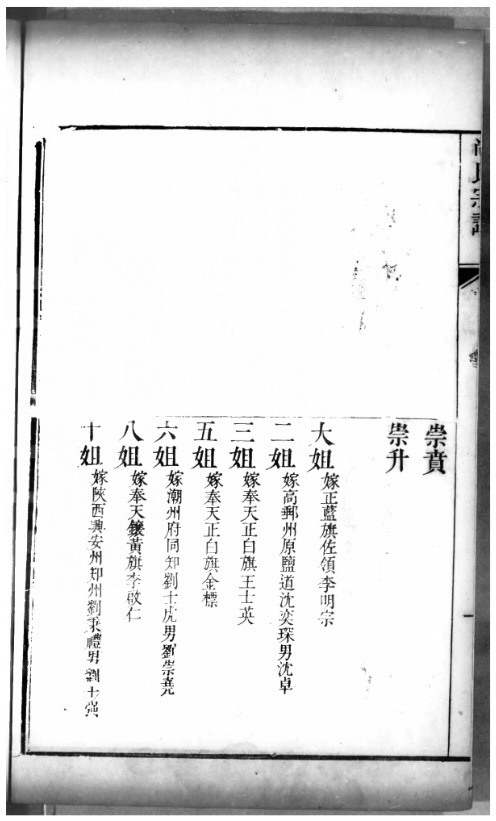 尚氏宗譜
崇賁
崇升
大姐 嫁正藍旗佐領李明宗
二姐 嫁高郵州原鹽道沈奕琛男沈卓
三姐 嫁奉天正白旗王士英
五姐 嫁奉天正白旗金標
六姐 嫁潮州府同知劉士虎男劉崇堯
八姐 嫁奉天鑲黃旗李啟仁
十姐 嫁陝西興安州知州劉秉禮男劉士英